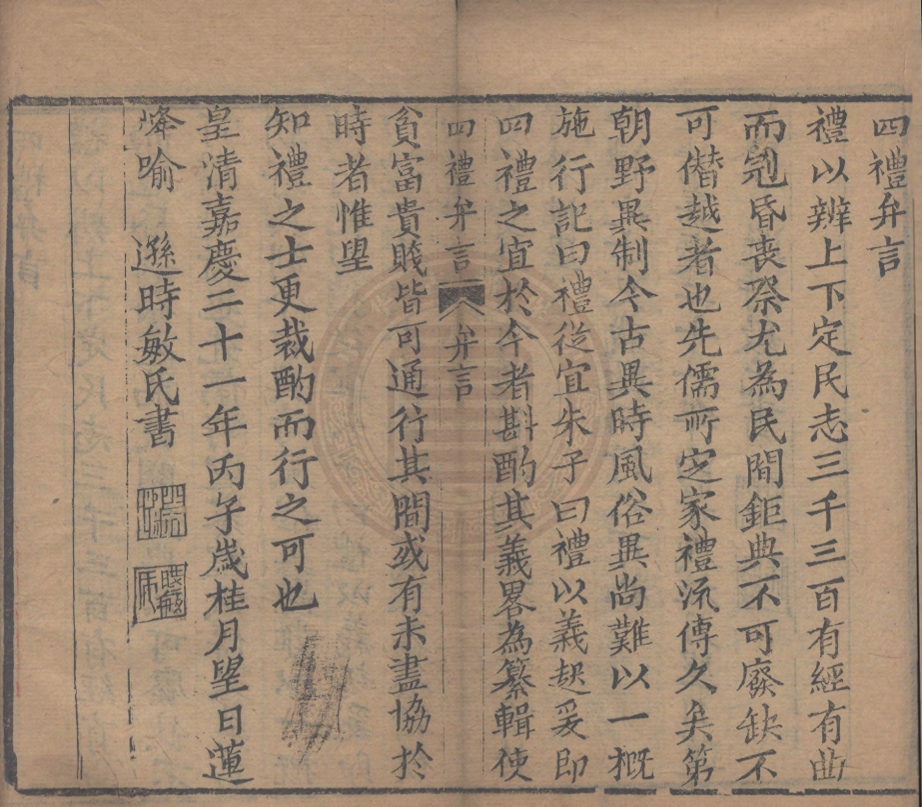 四禮弁言
禮以辨上下定民志三千三百有經有曲
而冠昏喪祭尤為民間鉅典不可廢缺不
可僭越者也先儒所定家禮流傳久矣第
朝野異制今古異時風俗異尚難以一概
施行記曰禮從宜朱子曰禮以義起爰即
四禮之宜於今者斟酌其義畧為纂輯使
四禮弁言 弁言
貧富貴賤皆可通行其間或有未盡協於
時者惟望
知禮之士更裁酌而行之可也
皇清嘉慶二十一年丙子歲桂月望日蓮
峰喻 遜時敏氏書
時敏